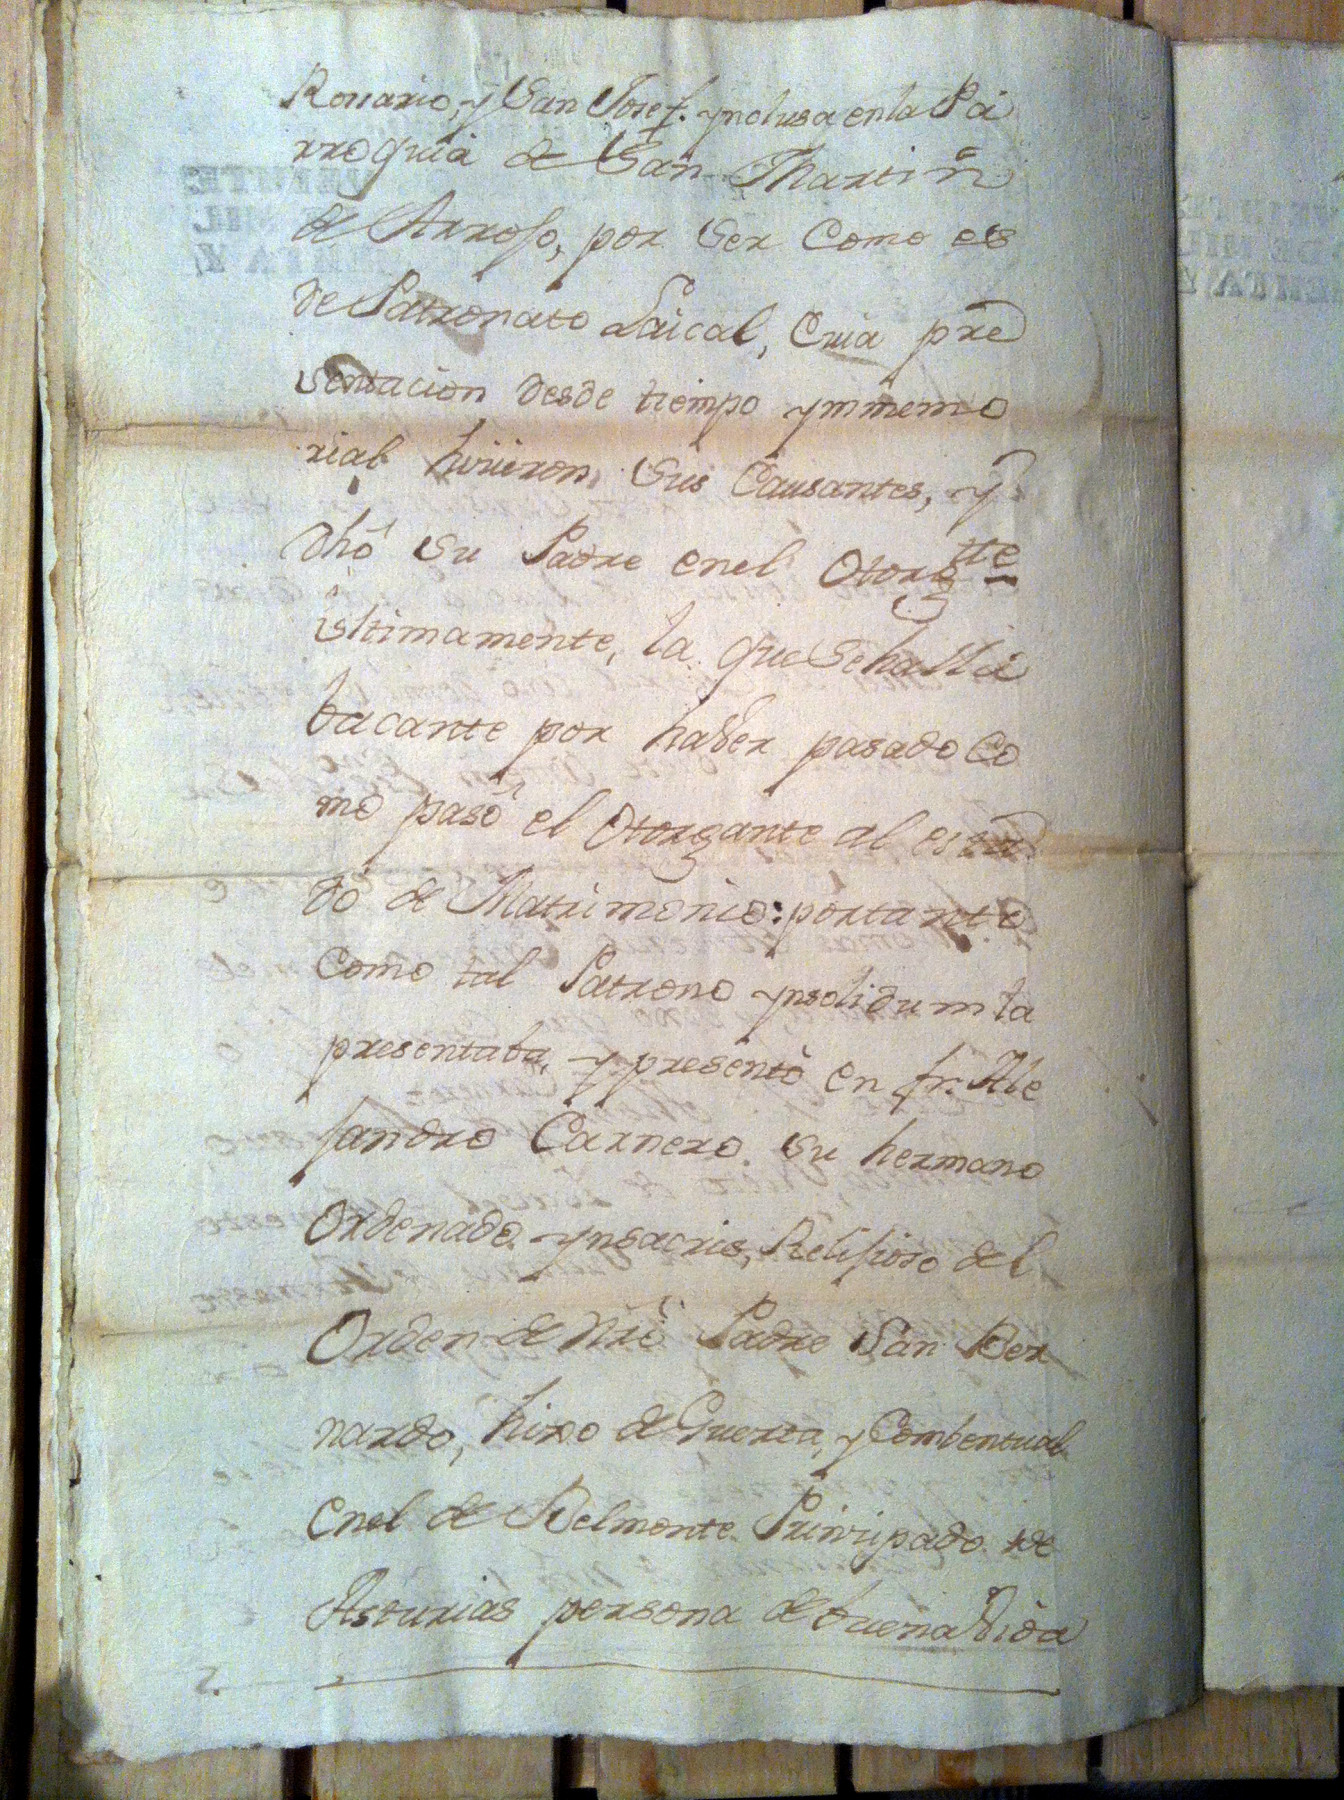 Rosario, y San Josef. ynclusa enla Pa
rroquia de San Martin
de Arrojo, por ser como es
de Patronato Laical, Cuia pre
sentacion desde tiempo ymmemo
rial hiciieron sus Causantes, y
dho su Padre enel Otorgte
ultimamente, la que sehalla
bacante por haber pasado Co
mo pasò el Otorgante al esta
do de Matrimonio: portanto
Como tal Patrono ynsolidum la
presentaba, y presentò en fr. Ale
jandro Carnero su hermano
Ordenado ynsacris, Relijioso del
Orden de Nrô Padre San Ber
nardo, hixo de Guerta, y Combentual
enel de Belmonte Principado de
Asturias persona de buena Vida